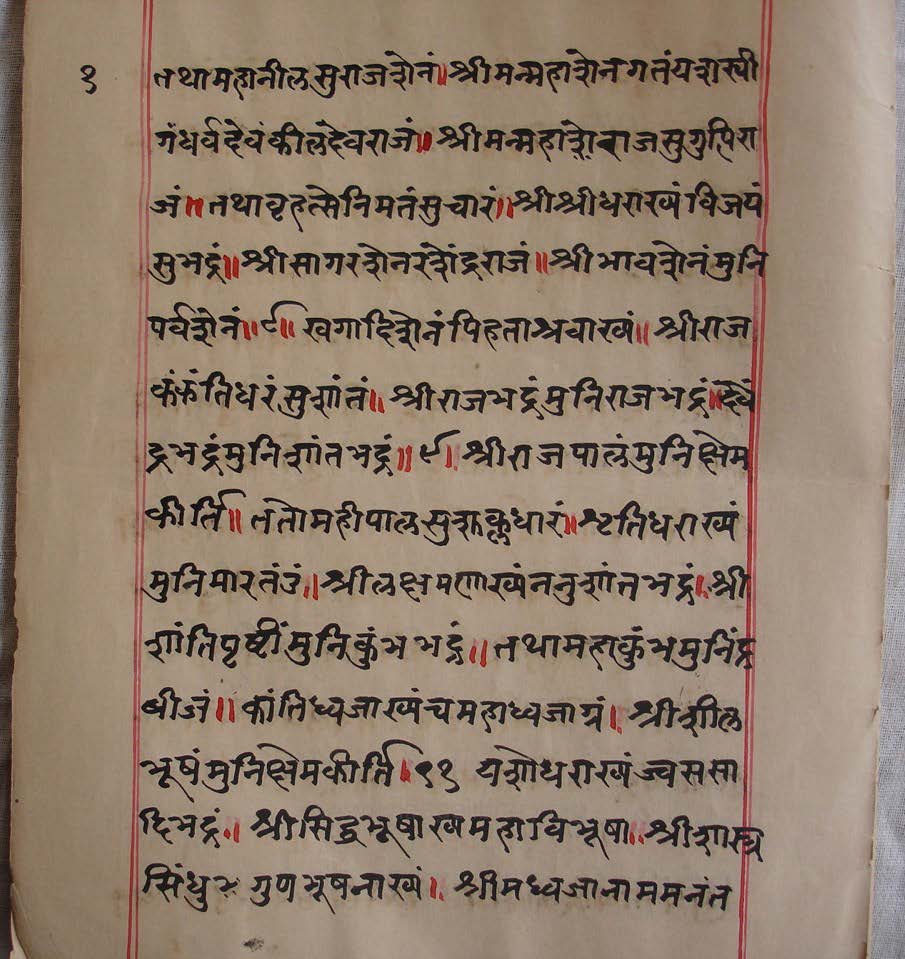 १ तथामहानीलसुराजशेनं॥श्रीमन्महाशेनगतंयशस्वी
गंधर्वदेवंकीलंदेवराजं॥श्रीमन्महाशेराजसुगुप्तिरा
जं॥तथावृहत्सेनिमतंसुचारं॥श्रीश्रीधराख्यंविजयं
सुभद्रं॥श्रीसागरशेनरशेंद्रराजं॥श्रीभावशेनंमुनि
पर्वशेनं॥९॥खगादिशेनंपिहताश्रवाख्यं॥श्रीराज
कंकंतिधरंसुशांतं॥श्रीराजभद्रंमुनिराजभद्रं॥
द्रभद्रंमुनिशांतभद्रं॥९॥श्रीराजपालंमुनिक्षेम
कीर्ति॥ततोमहीपाल
मुनिमारतंडं॥श्रीलक्षमणाख्यंननुशांतभद्रं॥श्री
शांतिपृष्टींमुनिकुंभभद्रं॥तथामहाकुंभमुनिंद्र
बीजं॥कांतिध्वजाख्यंचमहाध्वजाग्रं॥श्रीशील
भूषंमुनिक्षेमकीर्ति।११ यशोधराख्यंज्वससा
दिभद्रं॥श्रीसिद्धभूषाख्यमहाविभूषा॥श्रीशास्त्र
सिंधु गुणभूषनाख्यं॥श्रीमध्वजानाममनंत